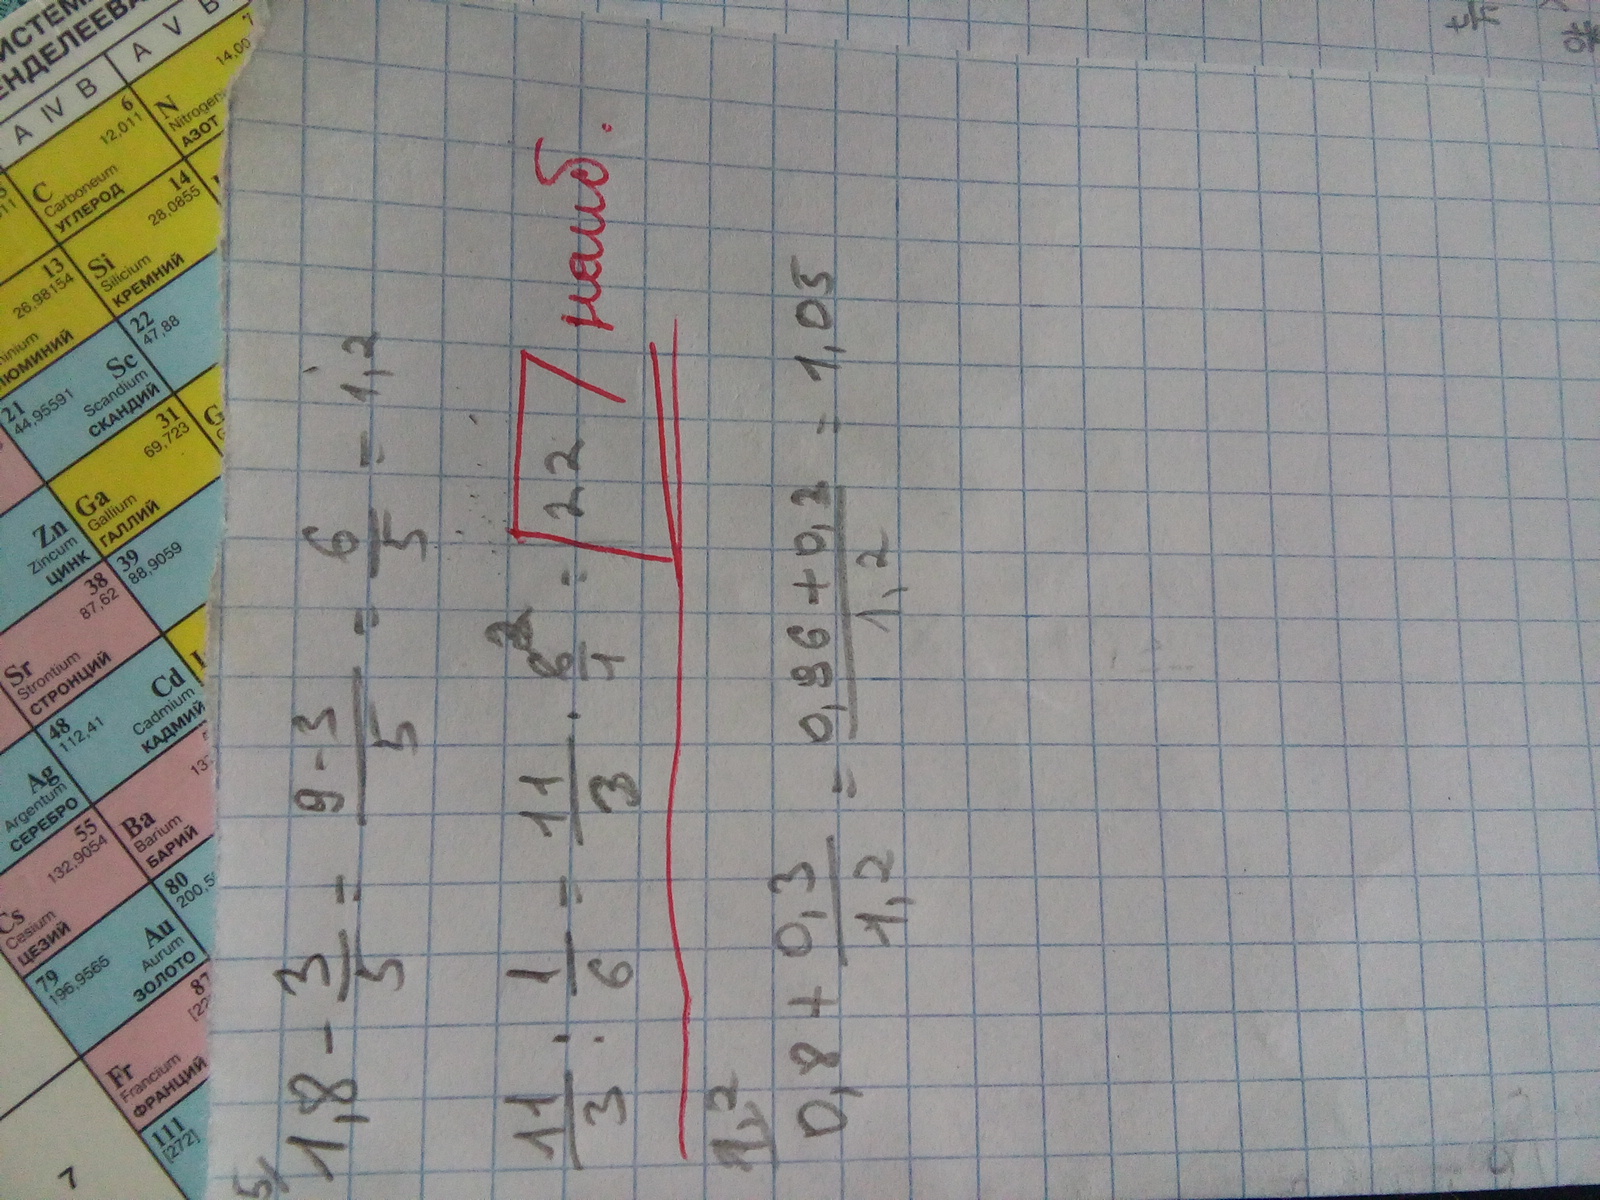 5)
1,8 - 3/5 = 9-3/5 = 6/5 = 1,2
11/3 : 1/6 = 11/3 · 6²/1 = 22 наиб.
1,2
0,8 + 0,3/1,2 = 0,96+0,3/1,2 = 1,05
ИСТЕМА
ЕНДЕЛЕЕВА
A IV B
A V B
6
C
12,011
Carboneum
УГЛЕРОД
N
14,00
Nitrogen
АЗОТ
13
26,98154
14
Si
28,0855
Silicium
КРЕМНИЙ
21
Sc
44,95591
Scandium
СКАНДИЙ
22
47,88
31
Ga
69,723
Gallium
ГАЛЛИЙ
Zn
Zincum
ЦИНК
39
88,9059
38
Sr
87,62
Strontium
СТРОНЦИЙ
48
Cd
112,41
Cadmium
КАДМИЙ
Ag
Argentum
СЕРЕБРО
55
Cs
132,9054
Cesium
ЦЕЗИЙ
Ba
Barium
БАРИЙ
80
200,5
79
Au
196,9665
Aurum
ЗОЛОТО
87
Fr
Francium
ФРАНЦИЙ
111
[272]
7